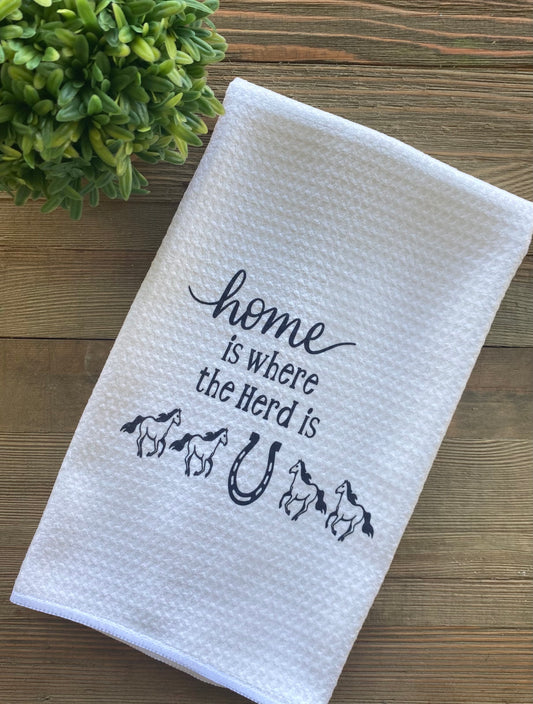 home
is where
the Herd is